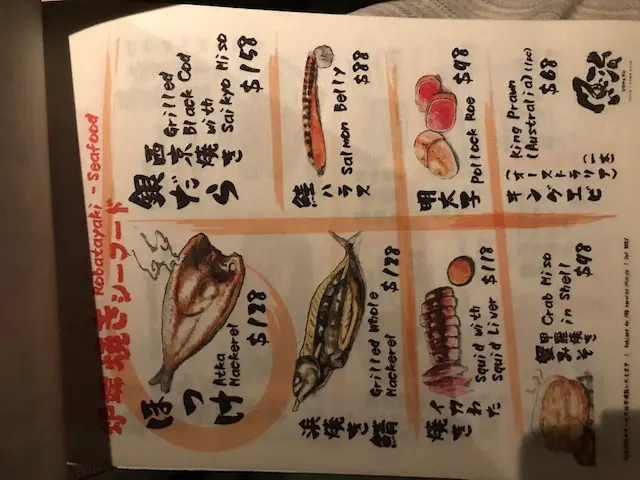 炉端焼きシーフード
Robatayaki - Seafood
ほっけ
Atka
Mackerel
$128
銀だら
西京焼き
Grilled
Black Cod
with
Saikyo Miso
$158
浜焼き鯖
Grilled Whole
Mackerel
$128
鮭
ハラス
Salmon Belly
$88
イカわた
焼き
Squid with
Squid Liver
$118
明太子
Pollock Roe
$98
蟹甲羅焼き
みそ
Crab Miso
in Shell
$98
キングエビ
(オーストラリア)(一本)
King Prawn
(Australia)(1pc)
$68